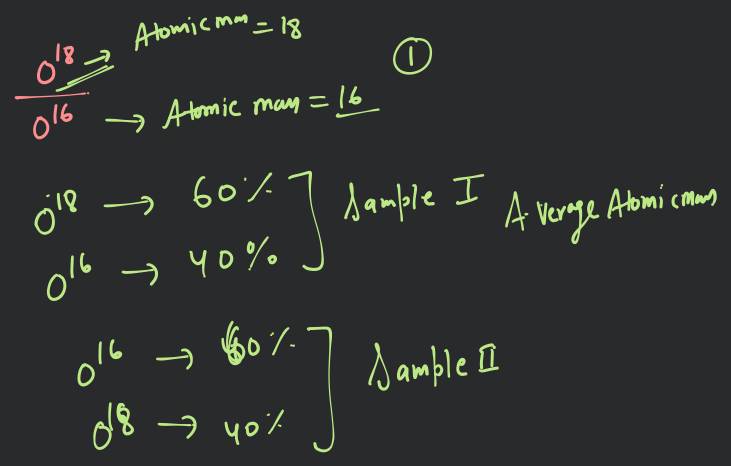 O¹⁸ → Atomic mass = 18
①
O¹⁶ → Atomic mass = 16
O¹⁸ → 60% Sample I Average Atomic mass
O¹⁶ → 40%
O¹⁶ → 60% Sample II
O¹⁸ → 40%